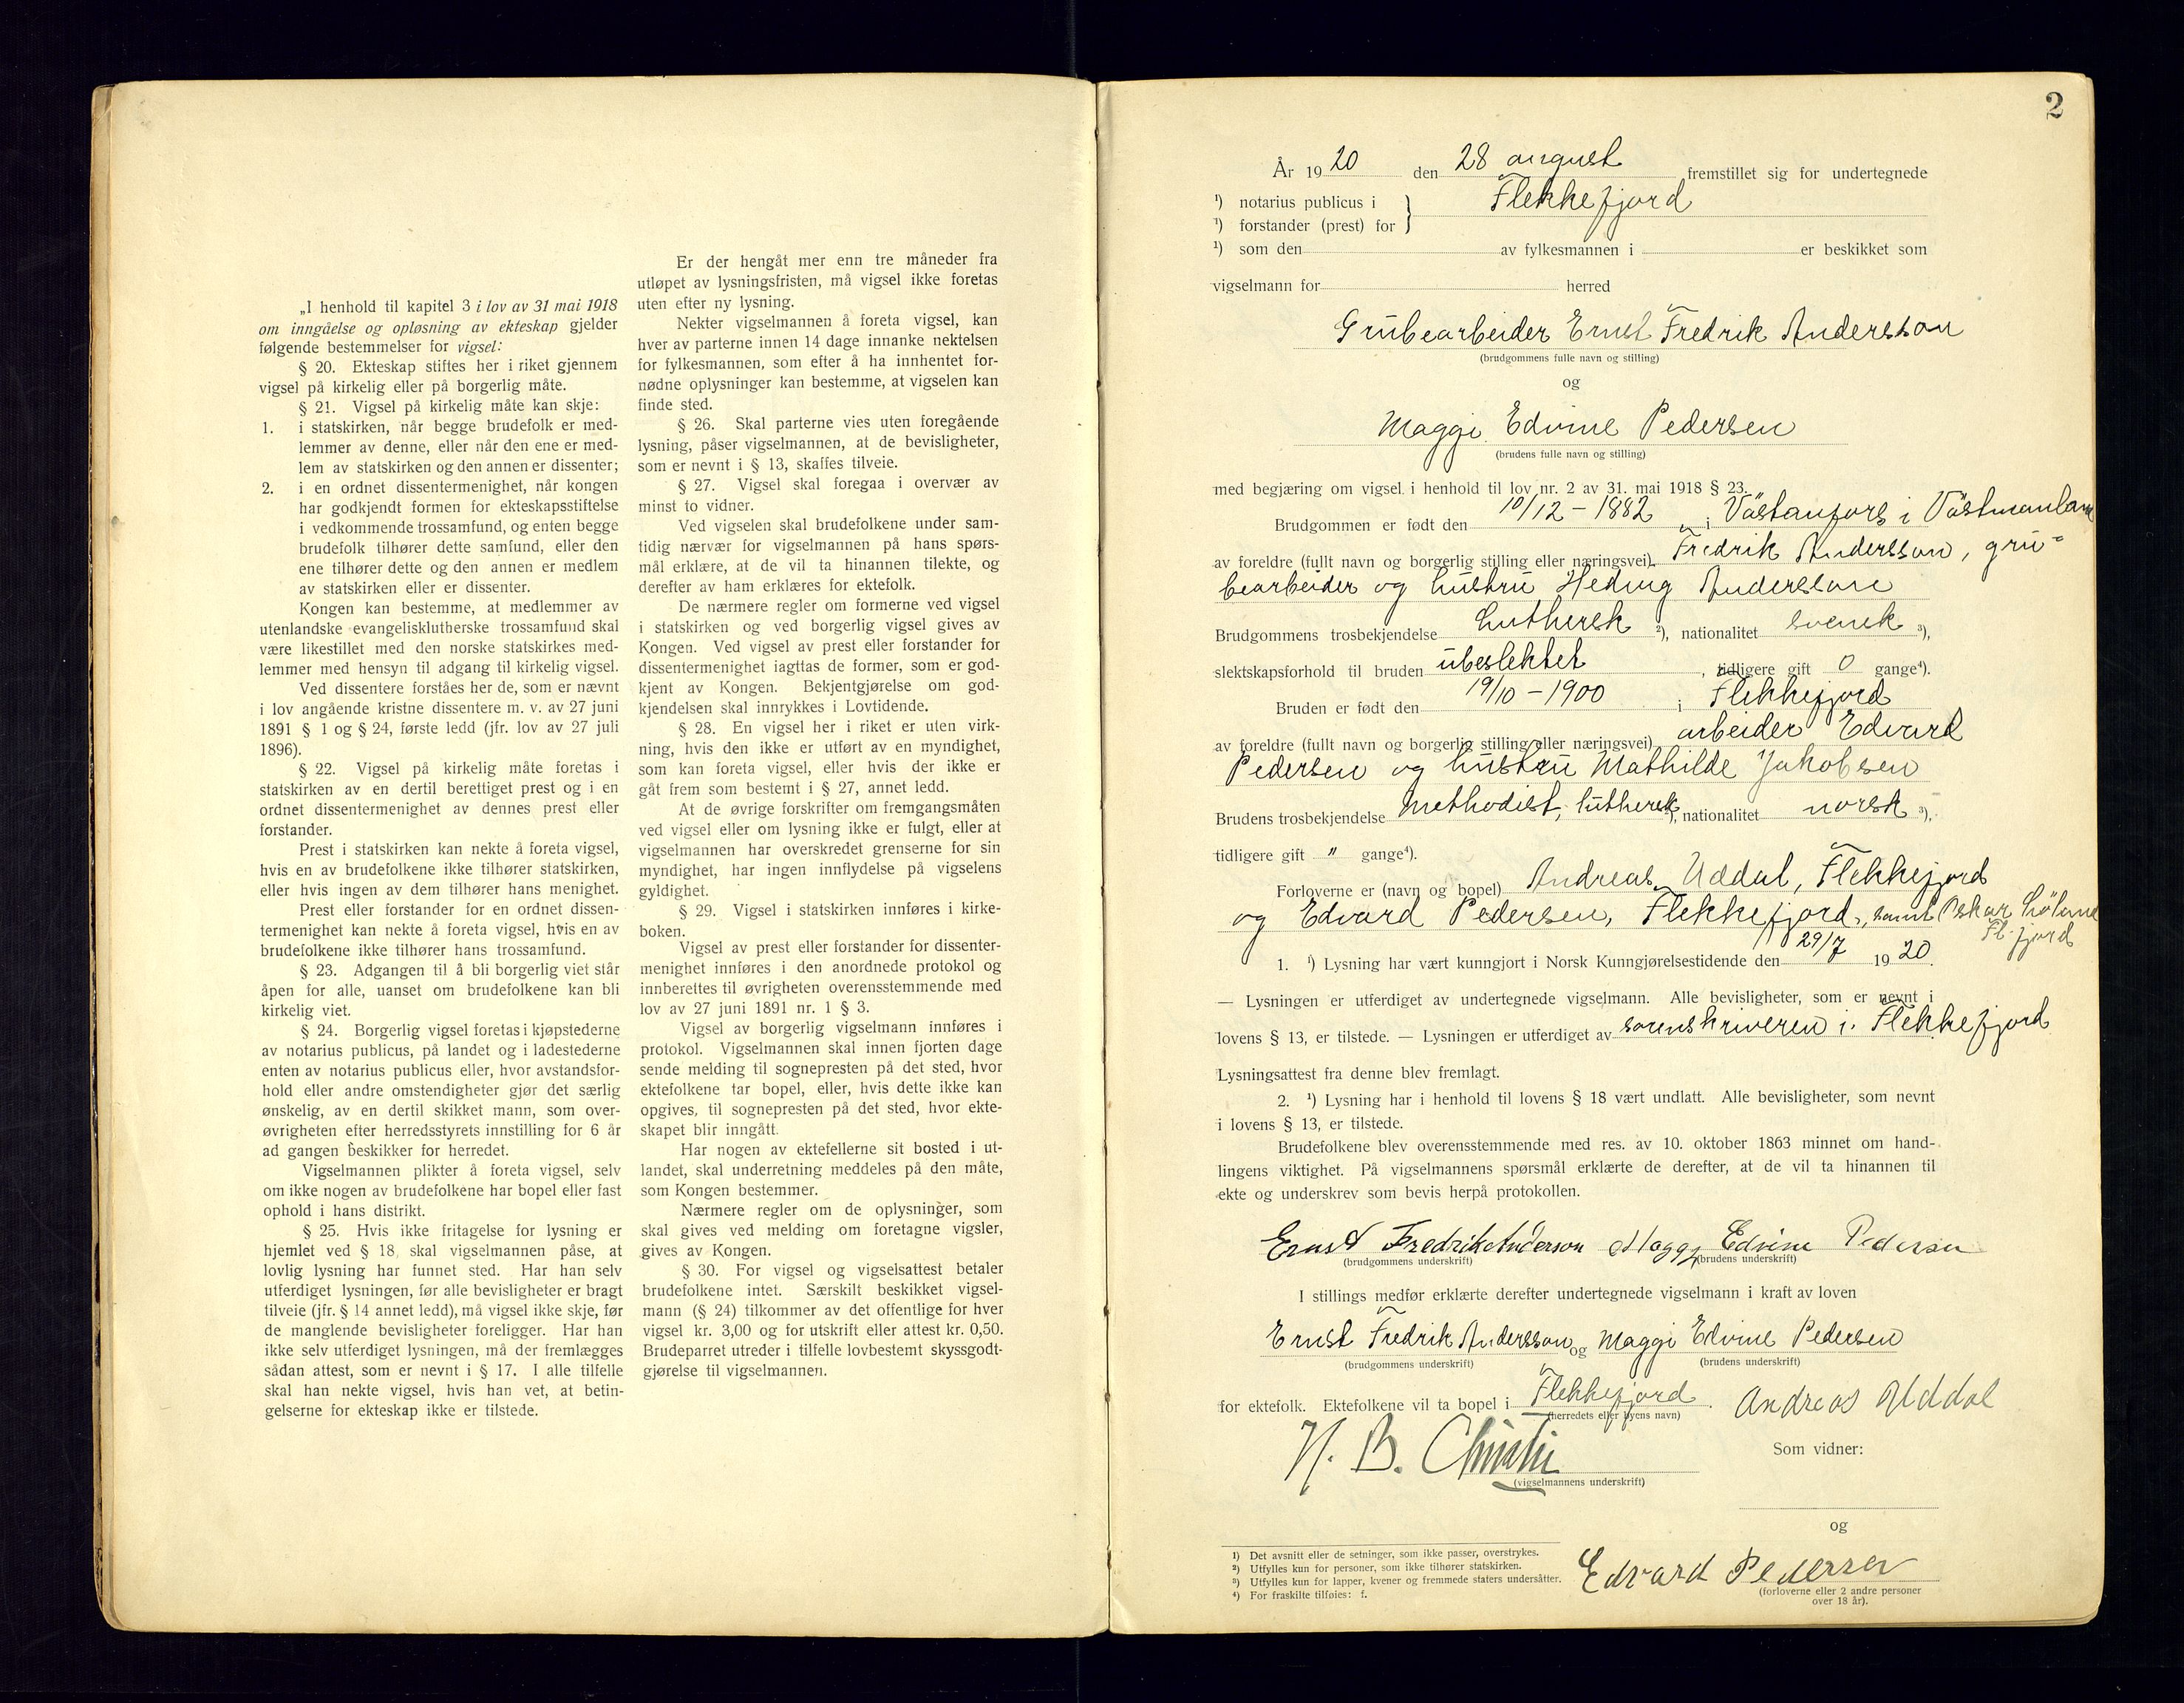 „I henhold til kapitel 3 i lov av 31 mai 1918
om inngåelse og opløsning av ekteskap gjelder
følgende bestemmelser for vigsel:
§ 20. Ekteskap stiftes her i riket gjennem
vigsel på kirkelig eller på borgerlig måte.
§ 21. Vigsel på kirkelig måte kan skje:
1. i statskirken, når begge brudefolk er med-
lemmer av denne, eller når den ene er med-
lem av statskirken og den annen er dissenter;
2. i en ordnet dissentermenighet, når kongen
har godkjendt formen for ekteskapsstiftelse
i vedkommende trossamfund, og enten begge
brudefolk tilhører dette samfund, eller den
ene tilhører dette og den annen er medlem
av statskirken eller er dissenter.
Kongen kan bestemme, at medlemmer av
utenlandske evangelisklutherske trossamfund skal
være likestillet med den norske statskirkes med-
lemmer med hensyn til adgang til kirkelig vigsel.
Ved dissentere forståes her de, som er nævnt
i lov angående kristne dissentere m. v. av 27 juni
1891 § 1 og § 24, første ledd (jfr. lov av 27 juli
1896).
§ 22. Vigsel på kirkelig måte foretas i
statskirken av en dertil berettiget prest og i en
ordnet dissentermenighet av dennes prest eller
forstander.
Prest i statskirken kan nekte å foreta vigsel,
hvis en av brudefolkene ikke tilhører statskirken,
eller hvis ingen av dem tilhører hans menighet.
Prest eller forstander for en ordnet dissen-
termenighet kan nekte å foreta vigsel, hvis en av
brudefolkene ikke tilhører hans trossamfund.
§ 23. Adgangen til å bli borgerlig viet står
åpen for alle, uanset om brudefolkene kan bli
kirkelig viet.
§ 24. Borgerlig vigsel foretas i kjøpstederne
av notarius publicus, på landet og i ladestederne
enten av notarius publicus eller, hvor avstandsfor-
hold eller andre omstendigheter gjør det særlig
ønskelig, av en dertil skikket mann, som over-
øvrigheten efter herredsstyrets innstilling for 6 år
ad gangen beskikker for herredet.
Vigselmannen plikter å foreta vigsel, selv
om ikke nogen av brudefolkene har bopel eller fast
ophold i hans distrikt.
§ 25. Hvis ikke fritagelse for lysning er
hjemlet ved § 18, skal vigselmannen påse, at
lovlig lysning har funnet sted. Har han selv
utferdiget lysningen, før alle bevisligheter er bragt
tilveie (jfr. § 14 annet ledd), må vigsel ikke skje, før
de manglende bevisligheter foreligger. Har han
ikke selv utferdiget lysningen, må der fremlægges
sådan attest, som er nevnt i § 17. I alle tilfelle
skal han nekte vigsel, hvis han vet, at betin-
gelserne for ekteskap ikke er tilstede.
Er der hengåt mer enn tre måneder fra
utløpet av lysningsfristen, må vigsel ikke foretas
uten efter ny lysning.
Nekter vigselmannen å foreta vigsel, kan
hver av parterne innen 14 dage innanke nektelsen
for fylkesmannen, som efter å ha innhentet for-
nødne oplysninger kan bestemme, at vigselen kan
finde sted.
§ 26. Skal parterne vies uten foregående
lysning, påser vigselmannen, at de bevisligheter,
som er nevnt i § 13, skaffes tilveie.
§ 27. Vigsel skal foregaa i overvær av
minst to vidner.
Ved vigselen skal brudefolkene under sam-
tidig nærvær for vigselmannen på hans spørs-
mål erklære, at de vil ta hinannen tilekte, og
derefter av ham erklæres for ektefolk.
De nærmere regler om formerne ved vigsel
i statskirken og ved borgerlig vigsel gives av
Kongen. Ved vigsel av prest eller forstander for
dissentermenighet iagttas de former, som er god-
kjent av Kongen. Bekjentgjørelse om god-
kjendelsen skal innrykkes i Lovtidende.
§ 28. En vigsel her i riket er uten virk-
ning, hvis den ikke er utført av en myndighet,
som kan foreta vigsel, eller hvis der ikke er
gåt frem som bestemt i § 27, annet ledd.
At de øvrige forskrifter om fremgangsmåten
ved vigsel eller om lysning ikke er fulgt, eller at
vigselmannen har overskredet grenserne for sin
myndighet, har ingen innflydelse på vigselens
gyldighet.
§ 29. Vigsel i statskirken innføres i kirke-
boken.
Vigsel av prest eller forstander for dissenter-
menighet innføres i den anordnede protokol og
innberettes til øvrigheten overensstemmende med
lov av 27 juni 1891 nr. 1 § 3.
Vigsel av borgerlig vigselmann innføres i
protokol. Vigselmannen skal innen fjorten dage
sende melding til sognepresten på det sted, hvor
ektefolkene tar bopel, eller, hvis dette ikke kan
opgives, til sognepresten på det sted, hvor ekte-
skapet blir inngått.
Har nogen av ektefellerne sit bosted i ut-
landet, skal underretning meddeles på den måte,
som Kongen bestemmer.
Nærmere regler om de oplysninger, som
skal gives ved melding om foretagne vigsler,
gives av Kongen.
§ 30. For vigsel og vigselsattest betaler
brudefolkene intet. Særskilt beskikket vigsel-
mann (§ 24) tilkommer av det offentlige for hver
vigsel kr. 3,00 og for utskrift eller attest kr. 0,50.
Brudeparret utreder i tilfelle lovbestemt skyssgodt-
gjørelse til vigselmannen.
2
År 1920 den 28 august fremstillet sig for undertegnede
¹) notarius publicus i } Flekkefjord
¹) forstander (prest) for
¹) som den av fylkesmannen i er beskikket som
vigselmann for herred
Grubearbeider Ernst Fredrik Andersson
(brudgommens fulle navn og stilling)
og
Maggi Edvine Pedersen
(brudens fulle navn og stilling)
med begjæring om vigsel i henhold til lov nr. 2 av 31. mai 1918 § 23.
Brudgommen er født den 10/12 - 1882 i Västanfors i Västmanland
av foreldre (fullt navn og borgerlig stilling eller næringsvei) Fredrik Andersson, gru-
bearbeider og hustru Hedvig Andersson
Brudgommens trosbekjendelse Luthersk ²), nationalitet svensk ³),
slektskapsforhold til bruden ubeslektet, tidligere gift 0 gange⁴).
Bruden er født den 19/10 - 1900 i Flekkefjord
av foreldre (fullt navn og borgerlig stilling eller næringsvei) arbeider Edvard
Pedersen og hustru Mathilde Jakobsen
Brudens trosbekjendelse methodist, luthersk ²), nationalitet norsk ³),
tidligere gift " gange⁴).
Forloverne er (navn og bopel) Andreas Uddal, Flekkefjord
og Edvard Pedersen, Flekkefjord, samt Oskar
Fl.fjord
1. ¹) Lysning har vært kunngjort i Norsk Kunngjørelsestidende den 29/7 1920.
— Lysningen er utferdiget av undertegnede vigselmann. Alle bevisligheter, som er nevnt i
lovens § 13, er tilstede. — Lysningen er utferdiget av sorenskriveren i Flekkefjord
Lysningsattest fra denne blev fremlagt.
2. ¹) Lysning har i henhold til lovens § 18 vært undlatt. Alle bevisligheter, som nevnt
i lovens § 13, er tilstede.
Brudefolkene blev overensstemmende med res. av 10. oktober 1863 minnet om hand-
lingens viktighet. På vigselmannens spørsmål erklærte de derefter, at de vil ta hinannen til
ekte og underskrev som bevis herpå protokollen.
Ernst Fredrik Anderson Maggi Edvine Pedersen
(brudgommens underskrift) (brudens underskrift)
I stillings medfør erklærte derefter undertegnede vigselmann i kraft av loven
Ernst Fredrik Andersson og Maggi Edvine Pedersen
(brudgommens underskrift) (brudens underskrift)
for ektefolk. Ektefolkene vil ta bopel i Flekkefjord. Andreas Uddal
(herredets eller byens navn)
H. B. Christie Som vidner:
(vigselmannens underskrift)
og
Edvard Pedersen
(forloverne eller 2 andre personer
over 18 år).
¹) Det avsnitt eller de setninger, som ikke passer, overstrykes.
²) Utfylles kun for personer, som ikke tilhører statskirken.
³) Utfylles kun for lapper, kvener og fremmede staters undersåtter.
⁴) For fraskilte tilføies: f.